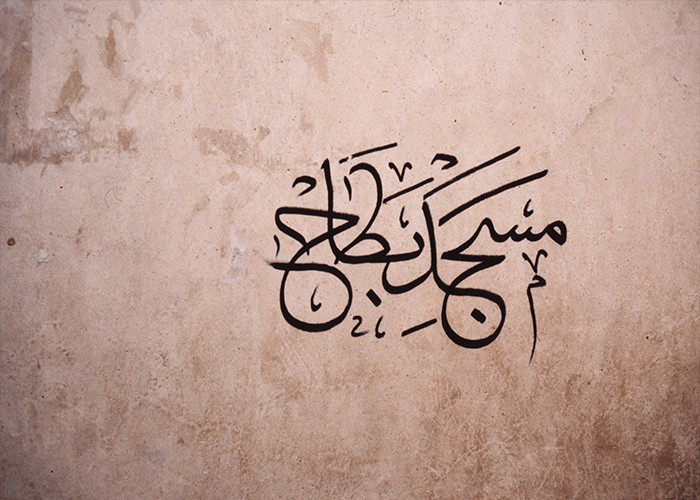 مسجد بطاح